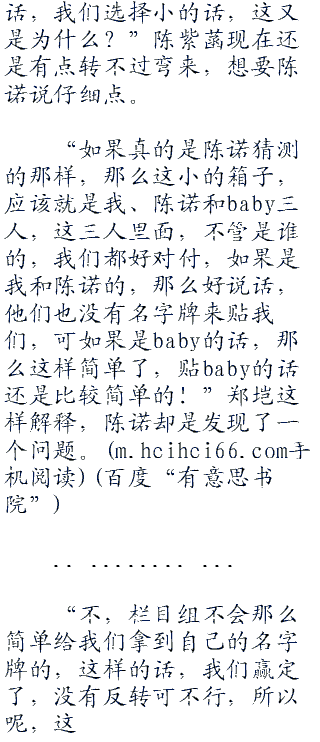 话，我们选择小的话，这又
是为什么？”陈紫菡现在还
是有点转不过弯来，想要陈
诺说仔细点。
“如果真的是陈诺猜测
的那样，那么这小的箱子，
应该就是我、陈诺和baby三
人，这三人里面，不管是谁
的，我们都好对付，如果是
我和陈诺的，那么好说话，
他们也没有名字牌来贴我
们，可如果是baby的话，那
么这样简单了，贴baby的话
还是比较简单的！”郑垲这
样解释，陈诺却是发现了一
个问题。(m.hcihci66.com手
机阅读)(百度“有意思书
院”)
.. ........ ...
“不，栏目组不会那么
简单给我们拿到自己的名字
牌的，这样的话，我们赢定
了，没有反转可不行，所以
呢，这